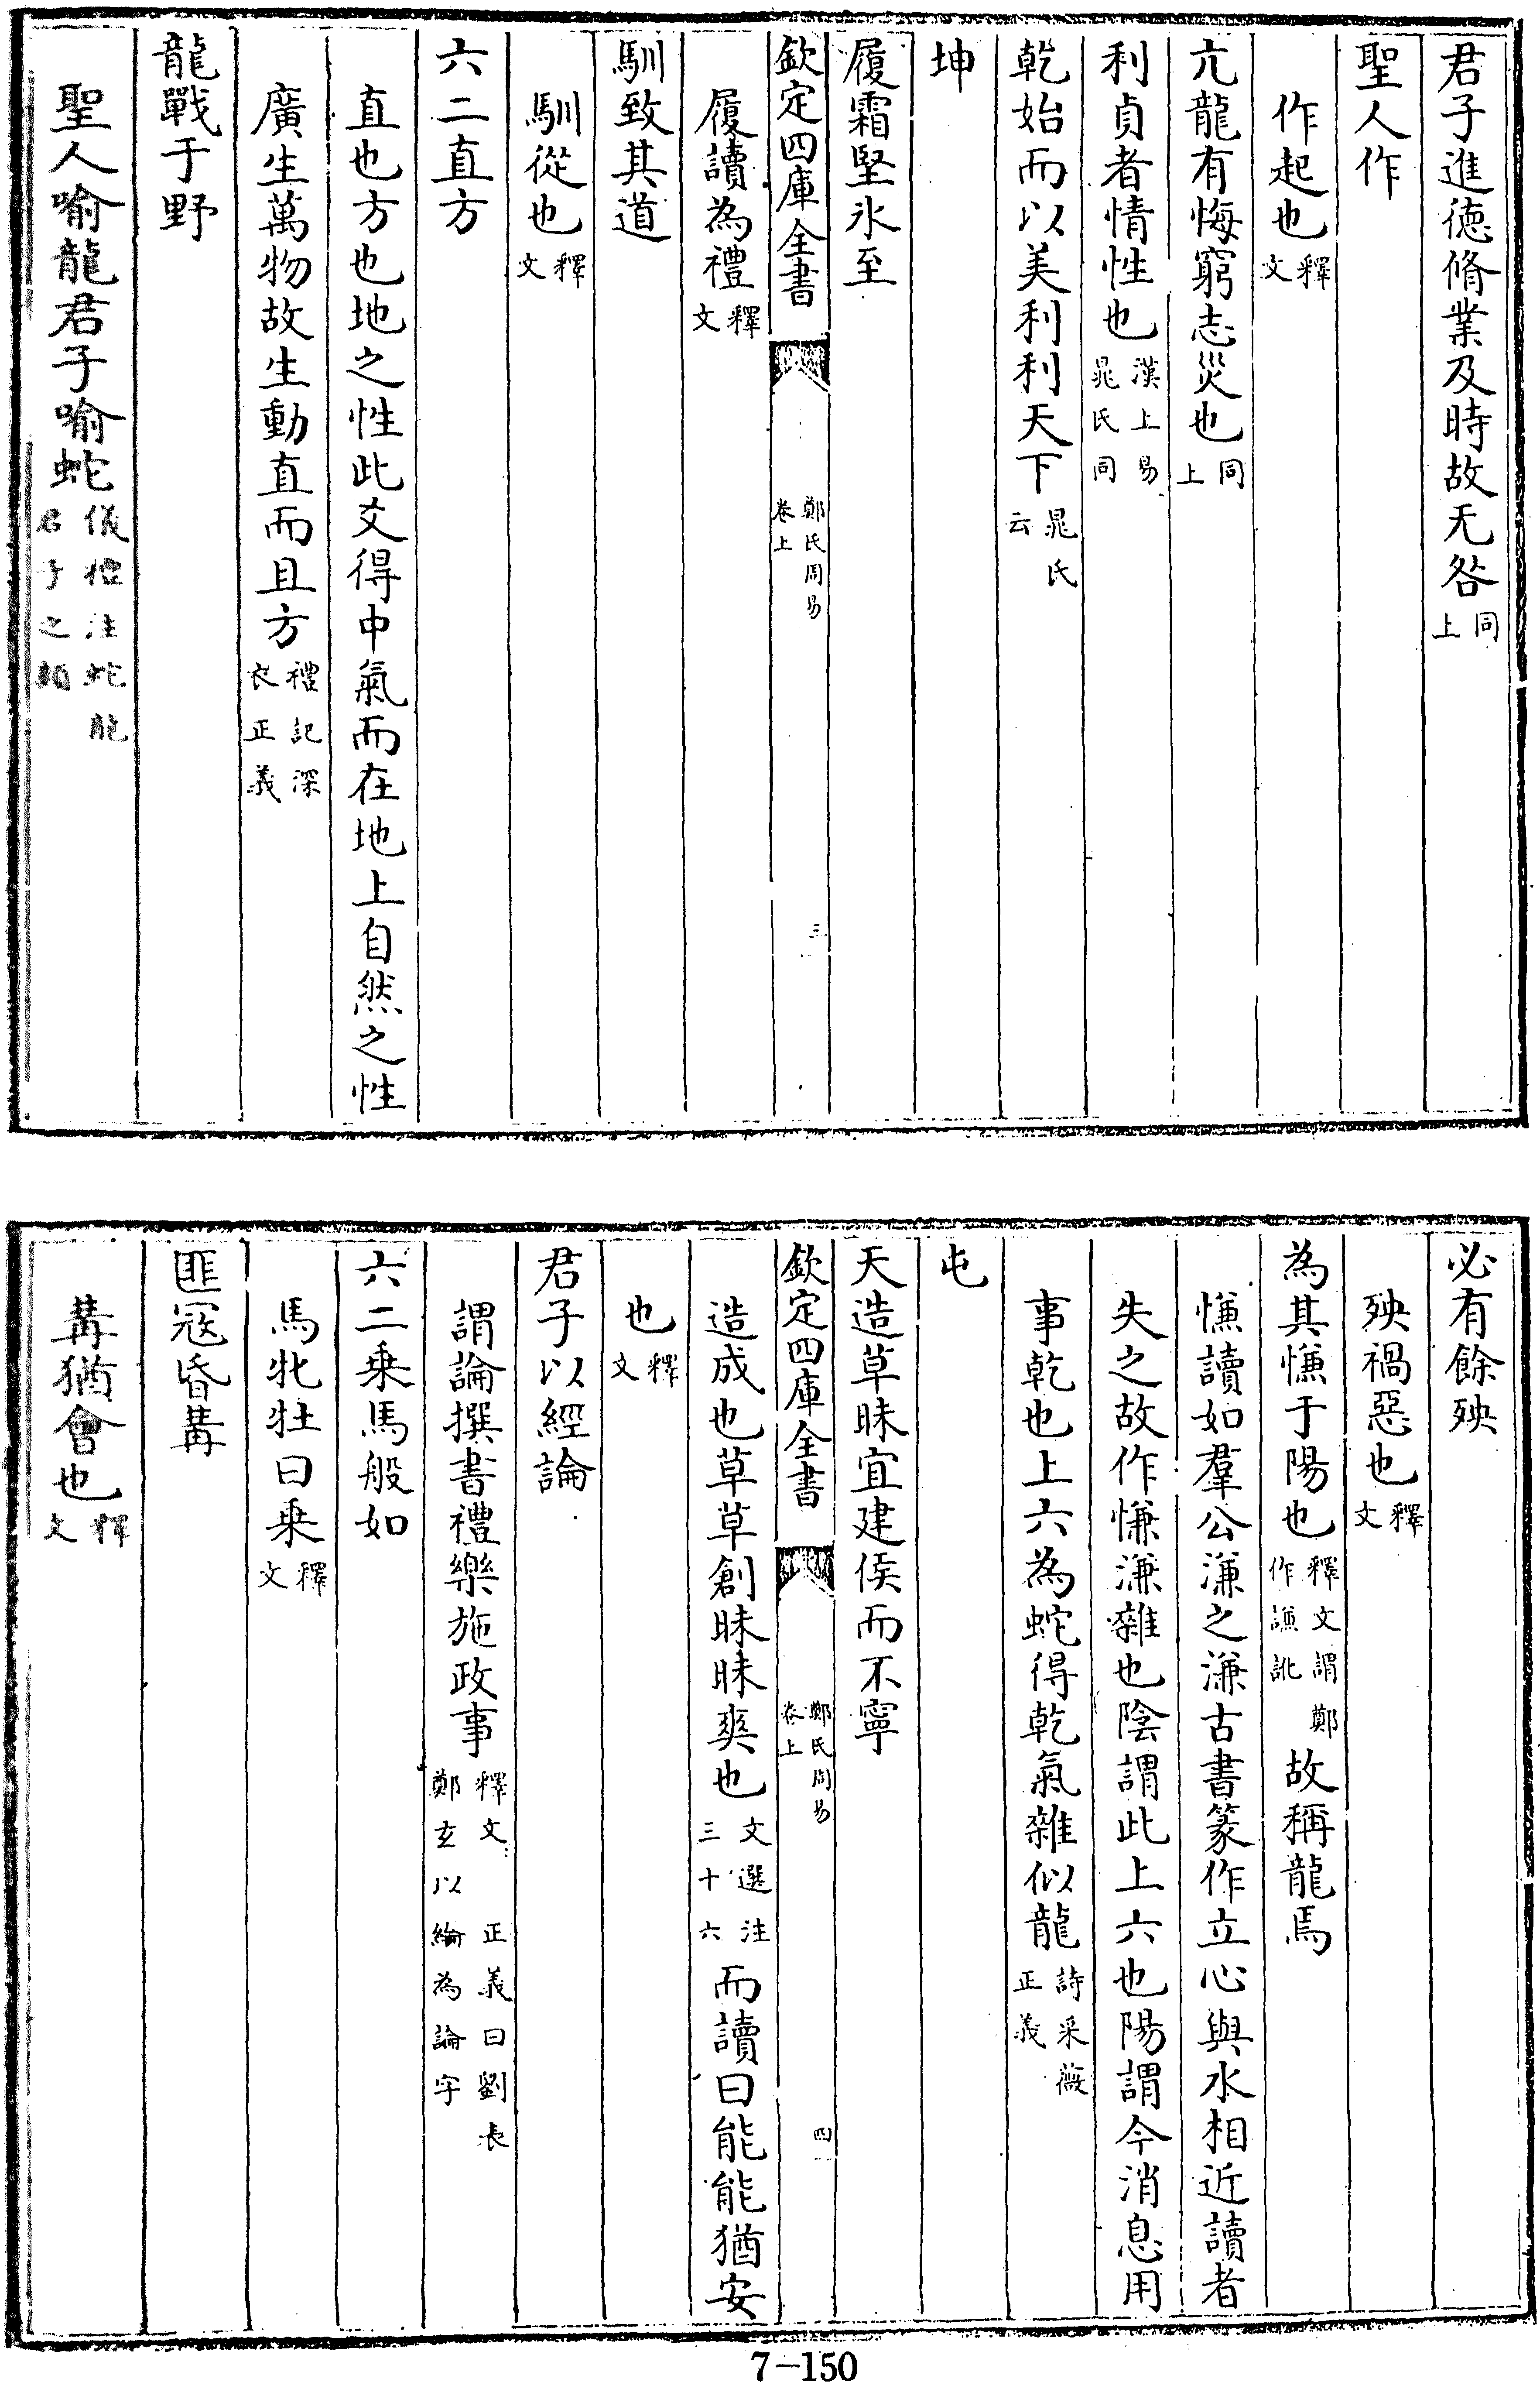 君子進德脩業及時故无咎同上
聖人作
作起也釋文
亢龍有悔窮志災也同上
利貞者情性也漢上易晁氏同
乾始而以美利利天下晁氏云
坤
履霜堅氷至
欽定四庫全書 鄭氏周易卷上 三
履讀為禮釋文
馴致其道
馴從也釋文
六二直方
直也方也地之性此爻得中氣而在地上自然之性
廣生萬物故生動直而且方禮記深衣正義
龍戰于野
聖人喻龍君子喻蛇儀禮注蛇龍君子之類
必有餘殃
殃禍惡也釋文
為其慊于陽也釋文謂鄭作謙訛故稱龍焉
慊讀如羣公溓之溓古書篆作立心與水相近讀者
失之故作慊溓雜也陰謂此上六也陽謂今消息用
事乾也上六為蛇得乾氣雜似龍詩采薇正義
屯
天造草昧宜建侯而不寧
欽定四庫全書 鄭氏周易卷上 四
造成也草草創昧昧爽也文選注三十六而讀曰能能猶安
也釋文
君子以經論
謂論撰書禮樂施政事釋文 正義曰劉表鄭玄以綸為論字
六二乗馬般如
馬牝牡曰乗釋文
匪寇昏冓
冓猶會也釋文
7-150